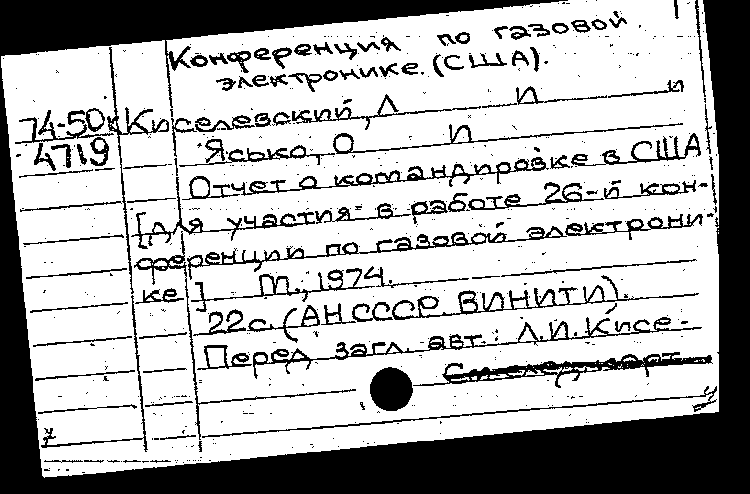 Конференция по газовой
электронике. (США).
74-50к Киселевский, Л И И
4719 Ясько, О И
Отчет о командировке в США
[для участия в работе 26-й кон-
ференции по газовой электрони-
ке] М., 1974.
22с. (АН СССР. ВИНИТИ).
Перед загл. авт.: Л.И. Кисе-
См. след. карт.